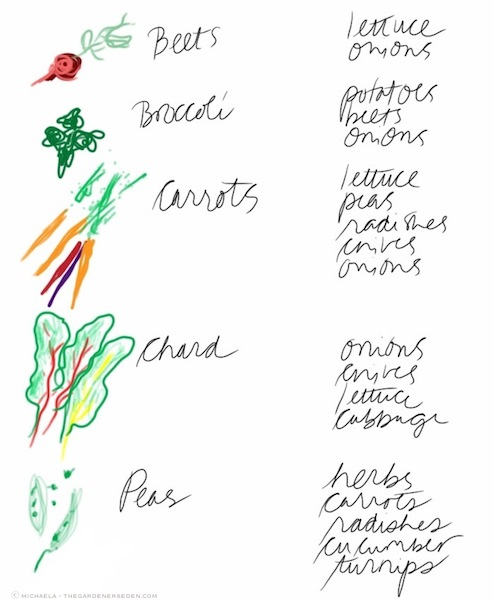 Beets
lettuce
onions
Broccoli
potatoes
beets
onions
Carrots
lettuce
peas
radishes
chives
onions
Chard
onions
chives
lettuce
cabbage
Peas
herbs
carrots
radishes
cucumber
turnips
© MICHAELA - THEGARDENERSEDEN.COM